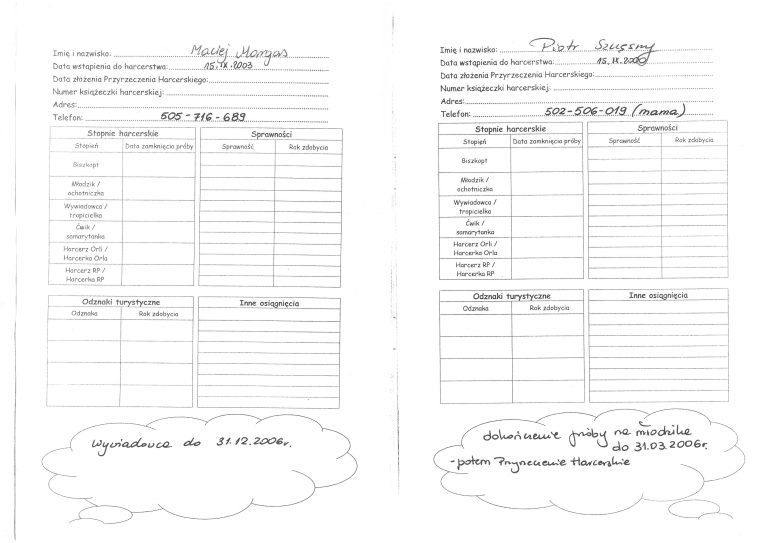 Imię i nazwisko: Maciej Mangas
Data wstąpienia do harcerstwa: 15.IX.2003
Data złożenia Przyrzeczenia Harcerskiego:
Numer książeczki harcerskiej:
Adres:
Telefon: 505-716-689
Stopnie harcerskie
Stopień Data zamknięcia próby
Biszkopt
Młodzik /
ochotniczka
Wywiadowca /
tropicielka
Ćwik /
samarytanka
Harcerz Orli /
Harcerka Orla
Harcerz RP /
Harcerka RP
Sprawności
Sprawność Rok zdobycia
Odznaki turystyczne
Odznaka Rok zdobycia
Inne osiągnięcia
Wywiadowca do 31.12.2006r.
Imię i nazwisko: Piotr
Data wstąpienia do harcerstwa: 15.IX.2000
Data złożenia Przyrzeczenia Harcerskiego:
Numer książeczki harcerskiej:
Adres:
Telefon: 502-506-019 (mama)
Stopnie harcerskie
Stopień Data zamknięcia próby
Biszkopt
Młodzik /
ochotniczka
Wywiadowca /
tropicielka
Ćwik /
samarytanka
Harcerz Orli /
Harcerka Orla
Harcerz RP /
Harcerka RP
Sprawności
Sprawność Rok zdobycia
Odznaki turystyczne
Odznaka Rok zdobycia
Inne osiągnięcia
dokończenie próby na młodzika
do 31.03.2006r.
- potem Przyrzeczenie Harcerskie